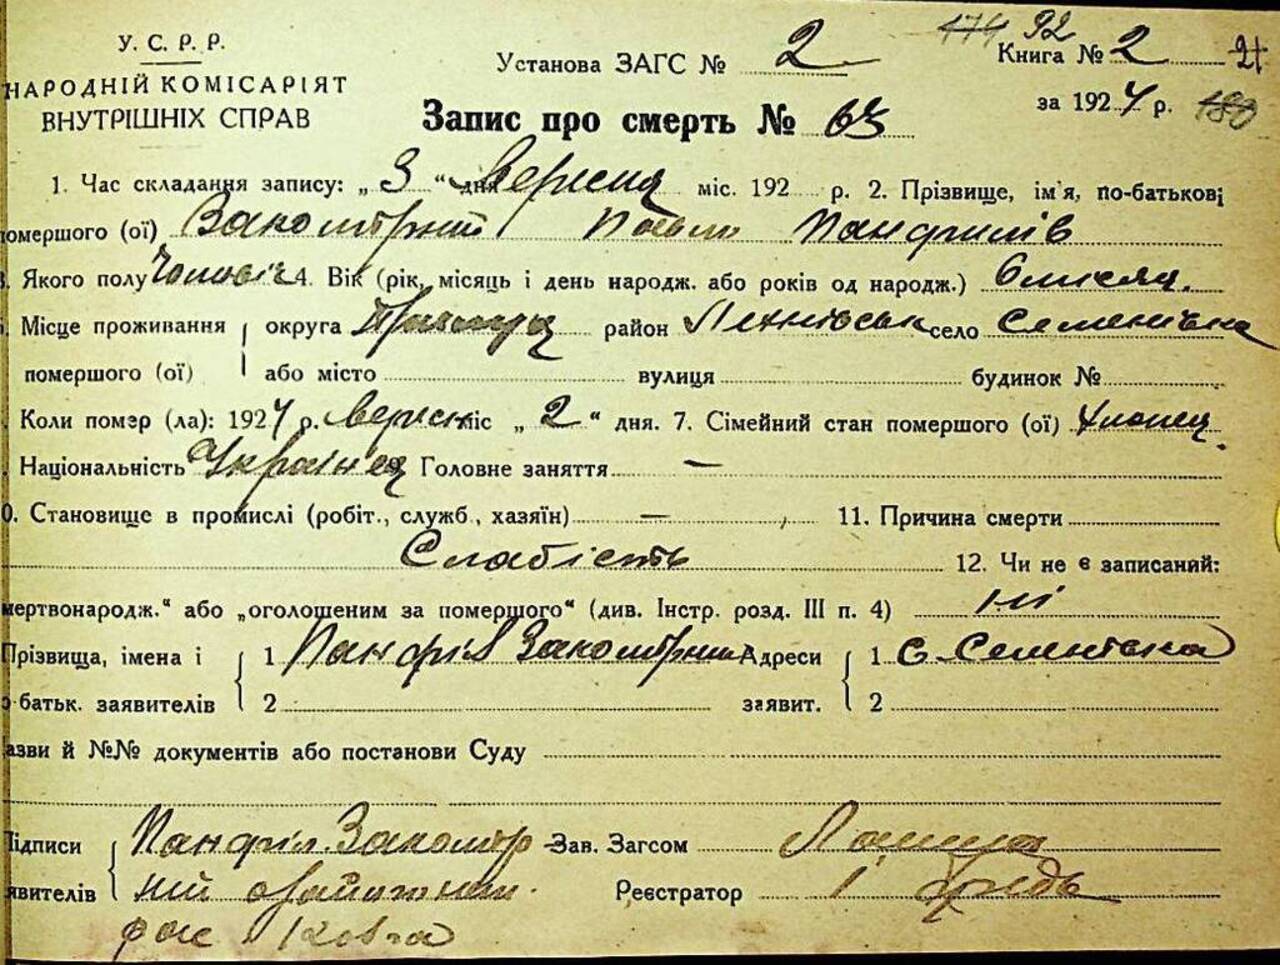 174 92
У. С. Р. Р.
НАРОДНІЙ КОМІСАРІЯТ
ВНУТРІШНІХ СПРАВ
Установа ЗАГС № 2
Книга № 2 21
за 1924 р. 180
Запис про смерть № 63
1. Час складання запису: „ 3 “ дня Вересня міс. 192 р. 2. Прізвище, ім'я, по-батькові
помершого (ої) Закомірний Павло Панфилів
Якого полу Чоловіч 4. Вік (рік, місяць і день народж. або років од народж.) 6 місяц.
Місце проживання округа Прилуц район Лехнівськ село Семенівка
помершого (ої) або місто вулиця будинок №
Коли помэр (ла): 1924 р. вересн міс „ 2 “ дня. 7. Сімейний стан помершого (ої) хлопец.
Національність Українец Головне заняття —
0. Становище в промислі (робіт., служб., хазяїн) — 11. Причина смерти
Слабість 12. Чи не є записаний:
мертвонародж.“ або „оголошеним за помершого“ (див. Інстр. розд. III п. 4) ні
Прізвища, імена і 1 Панфіл Закомірний Адреси 1 С. Семенівка
батьк. заявителів 2 заявит. 2
азви й №№ документів або постанови Суду
Підписи Панфіл Закомір Зав. Загсом
явителів ний Реєстратор